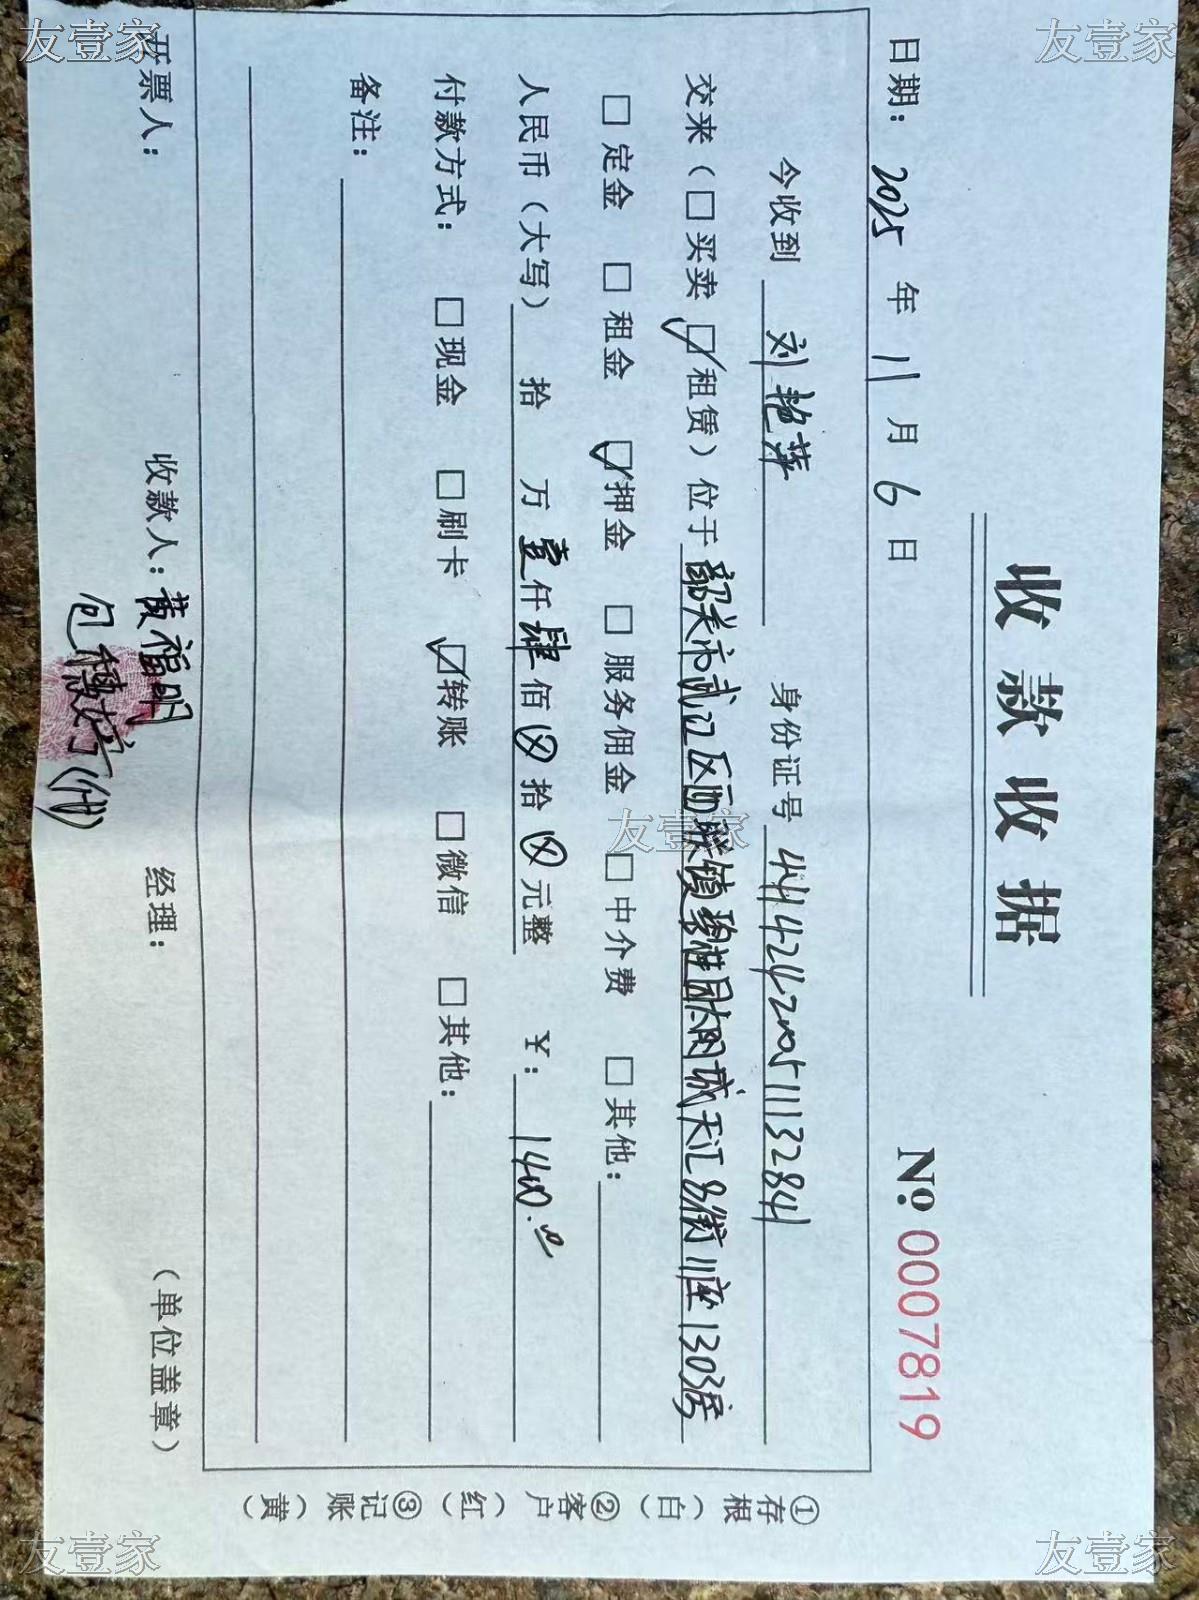 收款收据
№ 0007819
日期: 2025 年 11 月 6 日
今收到 刘艳萍 身份证号 441424200511113284
交来（□买卖 ☑租赁）位于 韶关市武江区西联镇碧桂园太阳城天汇名街11座1303房
□定金 □租金 ☑押金 □服务佣金 □中介费 □其他:
人民币（大写） 拾 万 壹仟肆佰⊗拾⊗元整 ¥: 1400.00
付款方式: □现金 □刷卡 ☑转账 □微信 □其他:
备注:
开票人: 收款人: 黄福明 经理: （单位盖章）
包穗婷(代)
①存根（白） ②客户（红） ③记账（黄）
友壹家
友壹家
友壹家
友壹家
友壹家